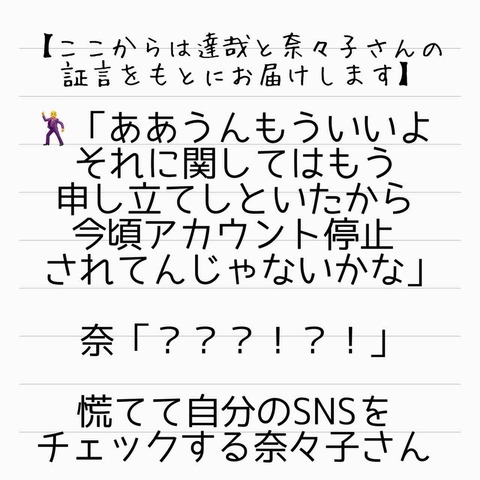 【ここからは達哉と奈々子さんの
証言をもとにお届けします】
🕺「ああうんもういいよ
それに関してはもう
申し立てしといたから
今頃アカウント停止
されてんじゃないかな」
奈「？？？！？！」
慌てて自分のSNSを
チェックする奈々子さん